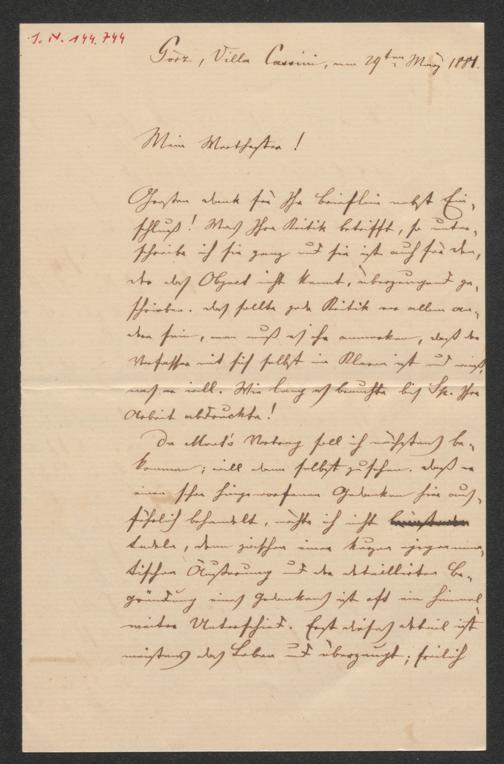 J. N. 144.744
Görz, Villa Cassini, am 29ten März 1881.
Mein Werthester!
Besten Dank für Ihr Brieflein nebst Ein-
schluß! Was Ihre Kritik betrifft, so unter-
schreibe ich sie ganz und sie ist auch für den,
der das Object nicht kennt, überzeugend ge-
schrieben. Das sollte jede Kritik vor allem an-
dern sein, man muß es ihr anmerken, daß der
Verfasser mit sich selbst im Klaren ist und weiß,
was er will. Wie lang es brauchte bis Ihre
Arbeit abdruckte!
De Vortrag soll ich nächstens be-
kommen; will dann selbst zusehen. Daß er
einen schon hingeworfenen Gedanken hier aus-
führlich behandelt, möchte ich nicht
tadeln, denn zwischen einer kurzen
Äußerung und der detaillirten Be-
gründung eines Gedankens ist oft ein himmel-
weiter Unterschied. Erst dieses Detail ist
meistens das Leben und überzeugt; freilich